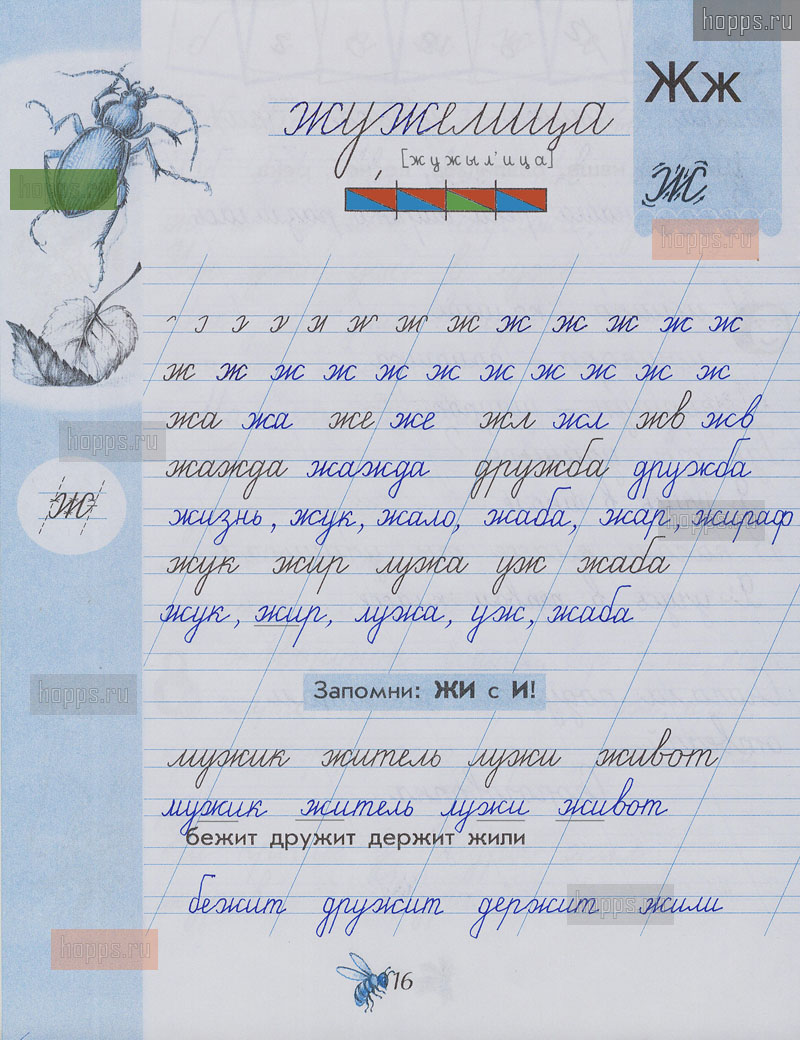 hopps.ru
Жж
жужелица
[жужыл'ица]
ж
hopps.ru
hopps.ru
ж ж ж ж ж ж ж ж
ж ж ж ж ж ж ж ж ж ж ж
жа жа же же жл жл жв жв
hopps.ru
жажда жажда дружба дружба
ж
жизнь, жук, жало, жаба, жар, жираф
hopps.ru
жук жир лужа уж жаба
жук, жир, лужа, уж, жаба
hopps.ru
Запомни: ЖИ с И!
мужик житель лужи живот
мужик житель лужи живот
бежит дружит держит жили
бежит дружит держит жили
hopps.ru
hopps.ru
16